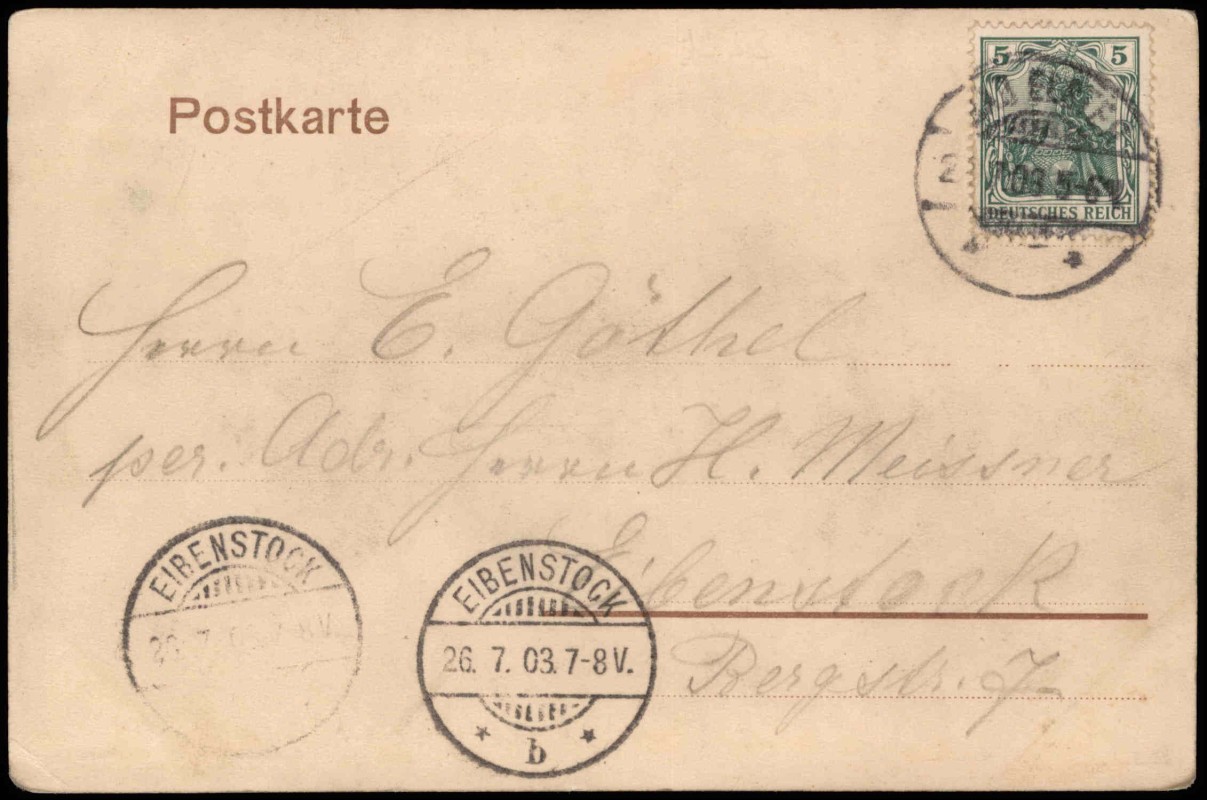 Postkarte
5 5
DEUTSCHES REICH
03 5-6
Herrn E. Göthel
per. Adr. Herrn H. Meissner
Eibenstock
Bergstr. 7
EIBENSTOCK
26. 7. 03. 7-8 V.
EIBENSTOCK
26. 7. 03. 7-8 V.
* b *